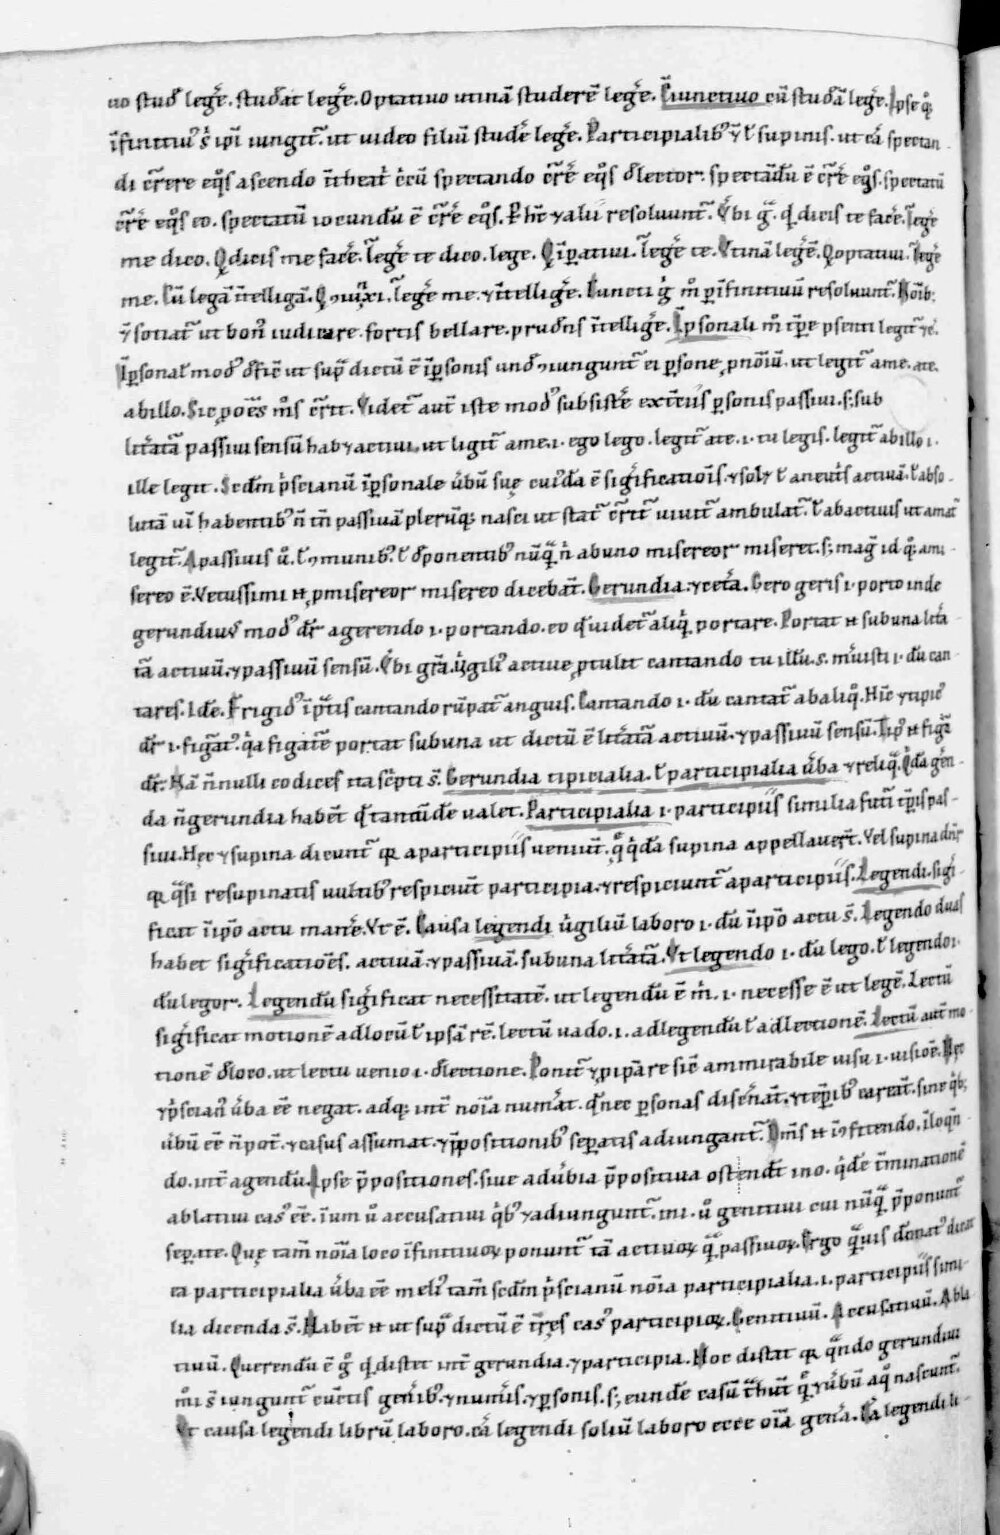 uo studē legere. studeat legere. Optatiuo utinā studerē legere. Ciunctiuo cū studeā legere. Ipse q̄
īfinitiuꝰ s̄ ip̄i iungit᷑. ut uideo filiū studere legere. Participialibꝰ ⁊ ł supinis. ut cā spectan
di c̄rere eq̊s ascendo ī theat͛ c̄cū spectando c̄rere eq̊s delector. spectādū ē c̄rere eq̊s. spectatū
c̄rere eq̊s eo. spectatū iocundū ē c̄rere eq̊s. P̱ hc̄ ⁊ alii resoluunt᷑. Vbi gᷓ. qd dicis te facere. legere
me dico. Q dicis me facere. legere te dico. lege. Q īperatiui. legere te. Vtinā legerē. Q optatiui. legere
me. Cū legā ītelligā. Q ꝯiūcti. legere me. ⁊ ītelligere. Cuncti gͥ mͦ p̱ īfinitiuū resoluunt᷑. Noīb;
⁊ sotiat᷑ ut bonꝰ iudicare. fortis bellare. prudens ītelligere. Īp̱sonali mͦ tp̄e p̄senti legit᷑ ⁊c̄.
Īp̱sonał modꝰ deficīe ut supᷓ dictū ē īp̱sonis unde ꝯiungunt᷑ ei p̱sone p̱noīū. ut legit᷑ a me. a te.
ab illo. Sic p̱ oēs mͦs c̄rit. Videt᷑ aut̄ iste modꝰ subsistere ex t͛ciis p̱sonis passiui. s; sub
lit͛atā passiui sensū hab⁊ actiui. ut legit᷑ a me. i. ego lego. legit᷑ a te. i. tu legis. legit᷑ ab illo i.
ille legit. Scdm p͛scianū īp̱sonale u͛bū suę cuiꝰdā ē significatiois. ⁊ sol⁊ ł a neut͛s actiuā. ł abso
lutā uī habentibꝰ ñ tn̄ passiuā plerūq; nasci ut stat᷑ c̄rit᷑ uiuit᷑ ambulat᷑. ł ab actiuis ut amat᷑
legit᷑. A passiuis ů. ł ꝯmunibꝰ. ł deponentibꝰ nūqᷓ. ñ ab uno misereor miseret. s; magͥ id qͦ; a mi
sereo ē. Vetussimi .n. ꝓ misereor misereo dicebāt. Gerundia. ⁊ cet͛a. Gero geris i. porto inde
gerundiuꝰ modꝰ dr̄ a gerendo i. portando. eo qd uidet᷑ aliqͥd portare. Portat .n. sub una lit͛a
tā actiuū. ⁊ passiuū sensū. Vbi gr̄a. u͛giliꝰ actiue p̱tulit cantando tu illū. s. m͛uisti i. dū can
tares. Idē. Frigidꝰ ī p̄tis cantando rūpat᷑ anguis. Cantando i. dū cantat᷑ ab aliqͦ. Hīc ⁊ tipicꝰ
dr̄ i. figatꝰ. qͥa figatē portat sub una ut dictū ē lit͛atā actiuū. ⁊ passiuū sensū. Tipꝰ .n. figᷓa
dr̄. Nā ñnulli codices ita sc͛pti s̄. Gerundia tipicialia. ł participialia u͛ba ⁊ reliqᷓ. Qͥdā gerun
da ñ gerundia habēt qd tantūdē ualet. Participialia i. participiis similia futͥi tp̱is pas
siui. Hęc ⁊ supina dicunt᷑ quia a participiis ueniūt. qͦ qͥdā supina appellauer̄t. Vel supina dn̄r
quia qᷓsi resupinatis uultibꝰ respiciūt participia. ⁊ respiciunt᷑ a participiis. Legendi. sigͥ
ficat ī ip̄o actu manere. Vt ē. Causa legendi u͛giliū laboro i. dū ī ip̄o actu s̄. Legendo duas
habet sigͥficatioēs. actiuā. ⁊ passiuā. sub una lit͛atā. Vt legendo i. dū lego. ł legendo i.
dū legor. Legendū sigͥficat necessitatē. ut legendū ē m͛. i. necesse ē ut legē. Lectū
sigͥficat motionē ad locū ł ipsā rē. lectū uado. i. ad legendū ł ad lectionē. Lectū aut̄ mo
tionē de loco. ut lectu uenio i. de lectione. Ponit᷑ ⁊ p̱ ip̄a re sic̄ ammirabile uisu i. uisioē. Nec
⁊ p͛scianꝰ u͛ba eē negat. adq; int͛ noīa num͛at. qd nec p̱sonas discernāt. ⁊ tēp̱ibꝰ careāt. sine qͥb;
u͛bū eē ñ pot̄. ⁊ casus assumāt. ⁊ p̄positionibꝰ sep̱atis adiungant᷑. Dīns .n. in fitendo, ī loqn̄
do. int͛ agendū. Ipse p̄positiones. siue adu͛bia p̄positiua ostendt ī no. qͥdē t͛minationē
ablatiui casꝰ eē. īum ů accusatiui qͥbꝰ ⁊ adiungunt᷑. ini. ů genitiui cui nūqᷓ p̄ponunt᷑
sep̱ate. Quę tam̄ noīa loco īfinitiuoꝝ ponunt᷑ tā actiuoꝝ qᷓ passiuoꝝ. Ergo qᷓuis donatꝰ dicat
ea participialia u͛ba eē meliꝰ tam̄ scdm p͛scianū noīa participialia. i. participiis simi
lia dicenda s̄. Habēt .n. ut supᷓ dictū ē tres casꝰ participioꝝ. Genitiuū. Accusatiuū. Abla
tiuū. Querendū ē gͦ qd distet int͛ gerundia. ⁊ participia. Hoc distat quia qᷓndo gerundiui
mͦi s̄ iungunt᷑ cūctis gen͛ibꝰ. ⁊ num͛is. ⁊ p̱sonis. s; eundē casū t͛hūt qͦ ⁊ u͛bū a qͦ nascunt᷑.
Vt causa legendi librū laboro. cā legendi soliū laboro ecce oīa gen͛a. Cā legendi li